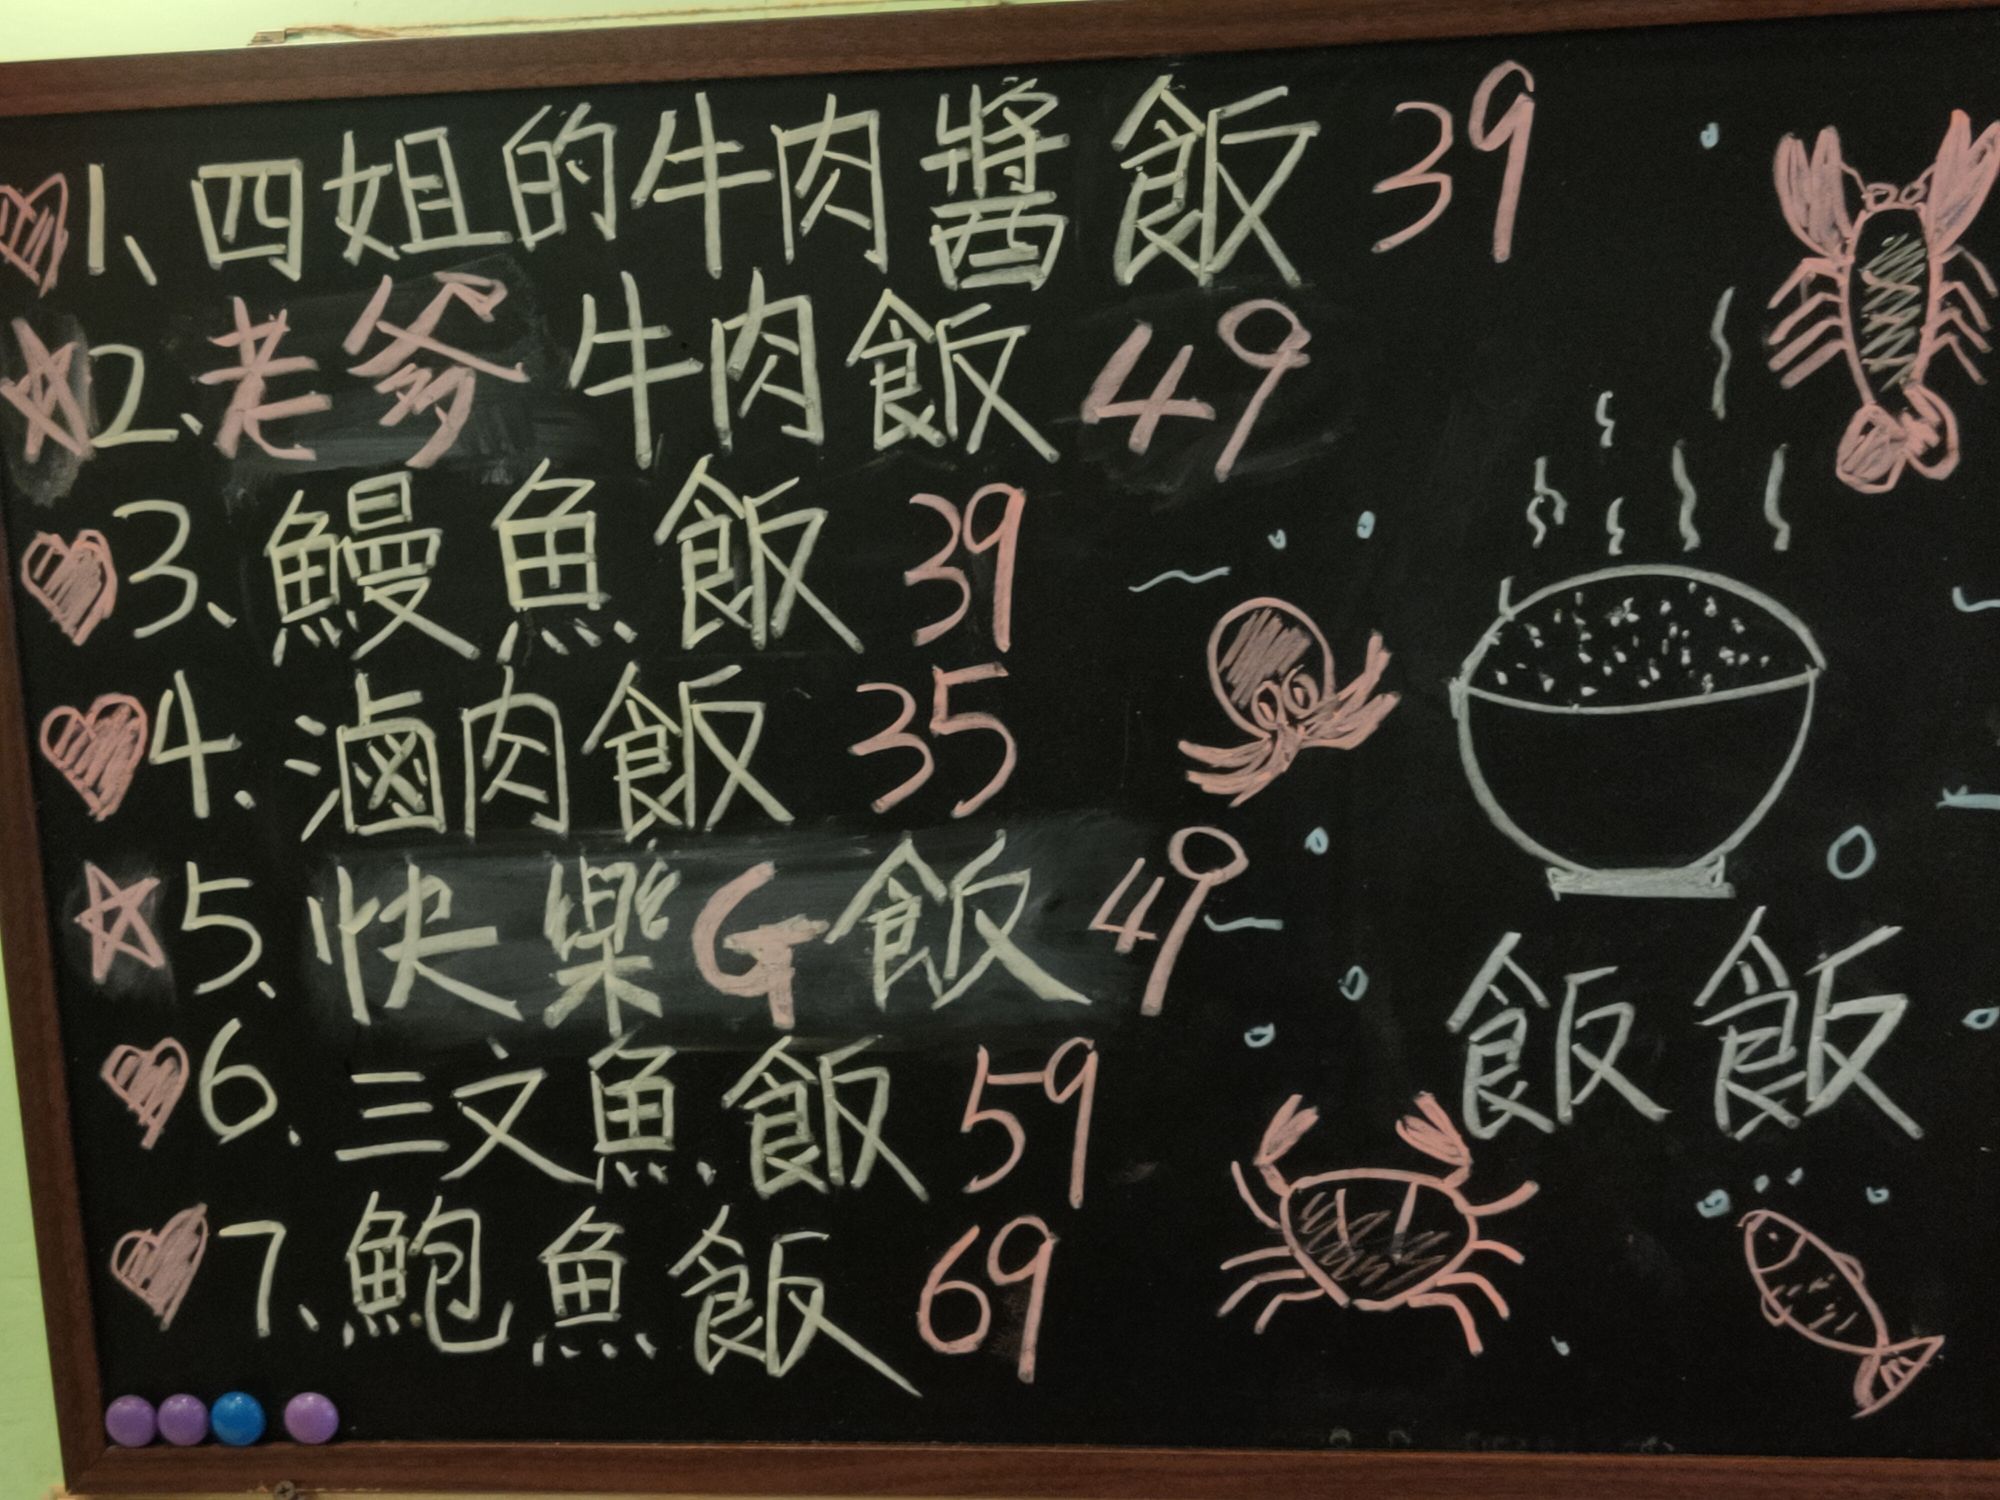 1、四姐的牛肉醬飯 39
2、老爹牛肉飯 49
3、鰻魚飯 39
4、滷肉飯 35
5、快樂G飯 49
6、三文魚飯 59
7、鮑魚飯 69
飯飯